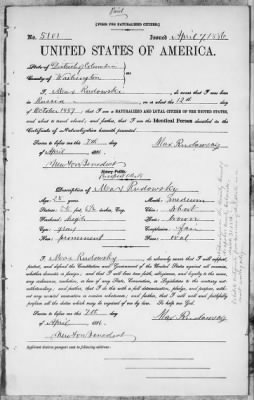 Paid
[FORM FOR NATURALIZED CITIZEN.]
No. 5101 Issued April 7, 1886
UNITED STATES OF AMERICA.
State of District of Columbia
County of Washington
I, Max Rudowski, do swear that I was born
in Russia on or about the 15th day
of October 1857; that I am a NATURALIZED AND LOYAL CITIZEN OF THE UNITED STATES,
and about to travel abroad; and further, that I am the Identical Person described in the
Certificate of Naturalization herewith presented.
Sworn to before me this 7th day
of April 1886.
Newton Benedict
Notary Public.
Max Rudowsky
Description of Max Rudowsky
Age: 28 years
Mouth: medium
Stature: 5 ft. inches, Eng.
Chin: short
Forehead: high
Hair: brown
Eyes: gray
Complexion: fair
Nose: prominent
Face: oval
I, Max Rudowsky, do solemnly swear that I will support,
protect, and defend the Constitution and Government of the United States against all enemies,
whether domestic or foreign; and that I will bear true faith, allegiance, and loyalty to the same,
any ordinance, resolution, or law of any State, Convention, or Legislature to the contrary not-
withstanding; and further, that I do this with a full determination, pledge, and purpose, with-
out any mental reservation or evasion whatsoever; and further, that I will well and faithfully
perform all the duties which may be required of me by law. So help me God.
Sworn to before me this 7th day
of April 1886.
Max Rudowsky
Newton Benedict
Applicant desires passport sent to following address: